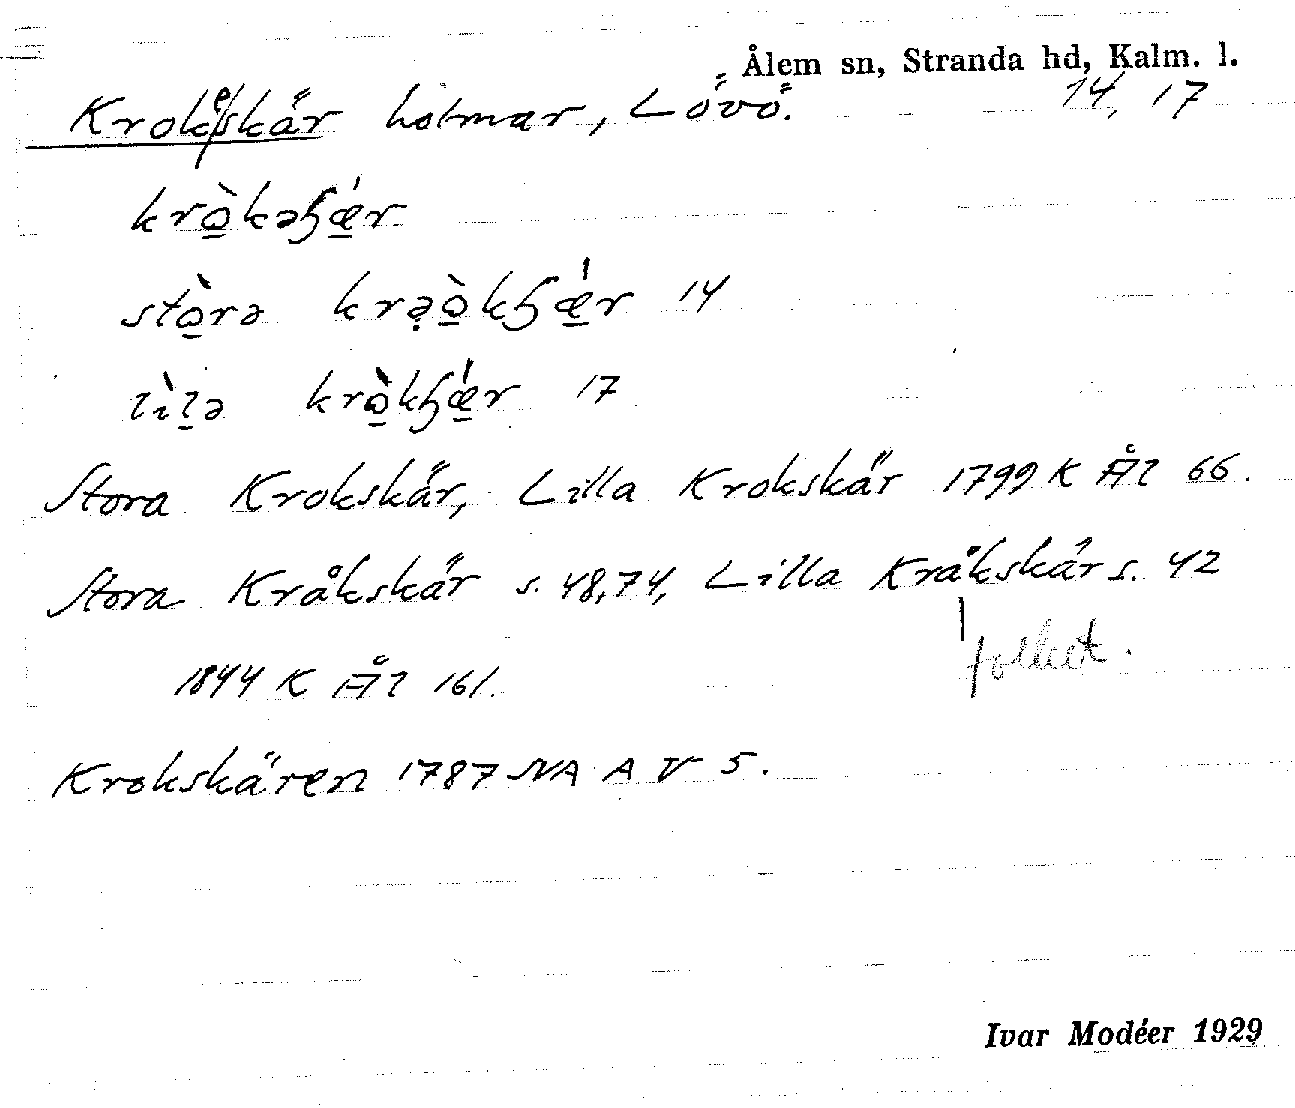 Ålem sn, Stranda hd, Kalm. l.
Krokeskär holmar, Lövö. 14, 17
krò̲kəɧǽ̲r
stò̲rə krə̣ò̲kɧǽ̲r 14
lìl̲ə krò̲kɧǽ̲r 17
Stora Krokskär, Lilla Krokskär 1799 K Ål 66.
Stora Kråkskär s. 48, 74, Lilla Kråkskär s. 42
folket.
1844 K Ål 161.
Krokskären 1787 NA A V 5.
Ivar Modéer 1929